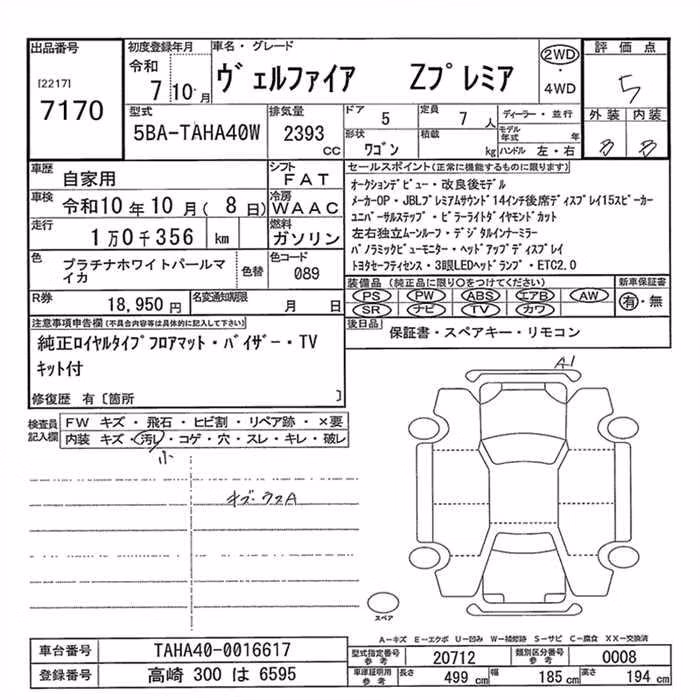 出品番号 初度登録年月 車名・グレード 評価点
[2217] 令和 ヴェルファイア Zプレミア 2WD ・ 4WD 5
7170 7 10 月
型式 排気量 ドア 定員 ディーラー・並行 外装 内装
5BA-TAHA40W 2393 CC 5 7人 モデル年式 年 B B
形状 積載 ハンドル 左・右
ワゴン kg
車歴 自家用 シフト FAT セールスポイント(正常に機能するものに限ります)
車検 令和10年10月( 8日) 冷房 WAAC オークションデビュー・改良後モデル
メーカーOP・JBLプレミアムサウンド14インチ後席ディスプレイ15スピーカー
走行 1万0千356 km 燃料 ガソリン ユニバーサルステップ・ピラーライトダイヤモンドカット
左右独立ムーンルーフ・デジタルインナーミラー
色 プラチナホワイトパールマイカ 色替 色コード 089 パノラミックビューモニター・ヘッドアップディスプレイ
トヨタセーフティセンス・3眼LEDヘッドランプ・ETC2.0
装備品(純正品に限り○をつけてください) 新車保証書
R券 18,950円 名変通知期限 月 日 PS PW ABS エアB AW 有・無
SR ナビ TV カワ
注意事項申告欄(不具合内容等は具体的に記入して下さい) 後日品 保証書・スペアキー・リモコン
純正ロイヤルタイプフロアマット・バイザー・TV
キット付
修復歴 有〔箇所 〕
A1
検査員記入欄 FW キズ・飛石・ヒビ割・リペア跡・×要
内装 キズ・汚レ・コゲ・穴・スレ・キレ・破レ
小
キズ・ウスA
スペア
A-キズ E-エクボ U-凹み W-補修跡 S-サビ C-腐食 XX-交換済
車台番号 TAHA40-0016617 型式指定番号 参考 20712 類別区分番号 参考 0008
登録番号 高崎 300 は 6595 車庫証明用 参考 長さ 499 cm 幅 185 cm 高さ 194 cm